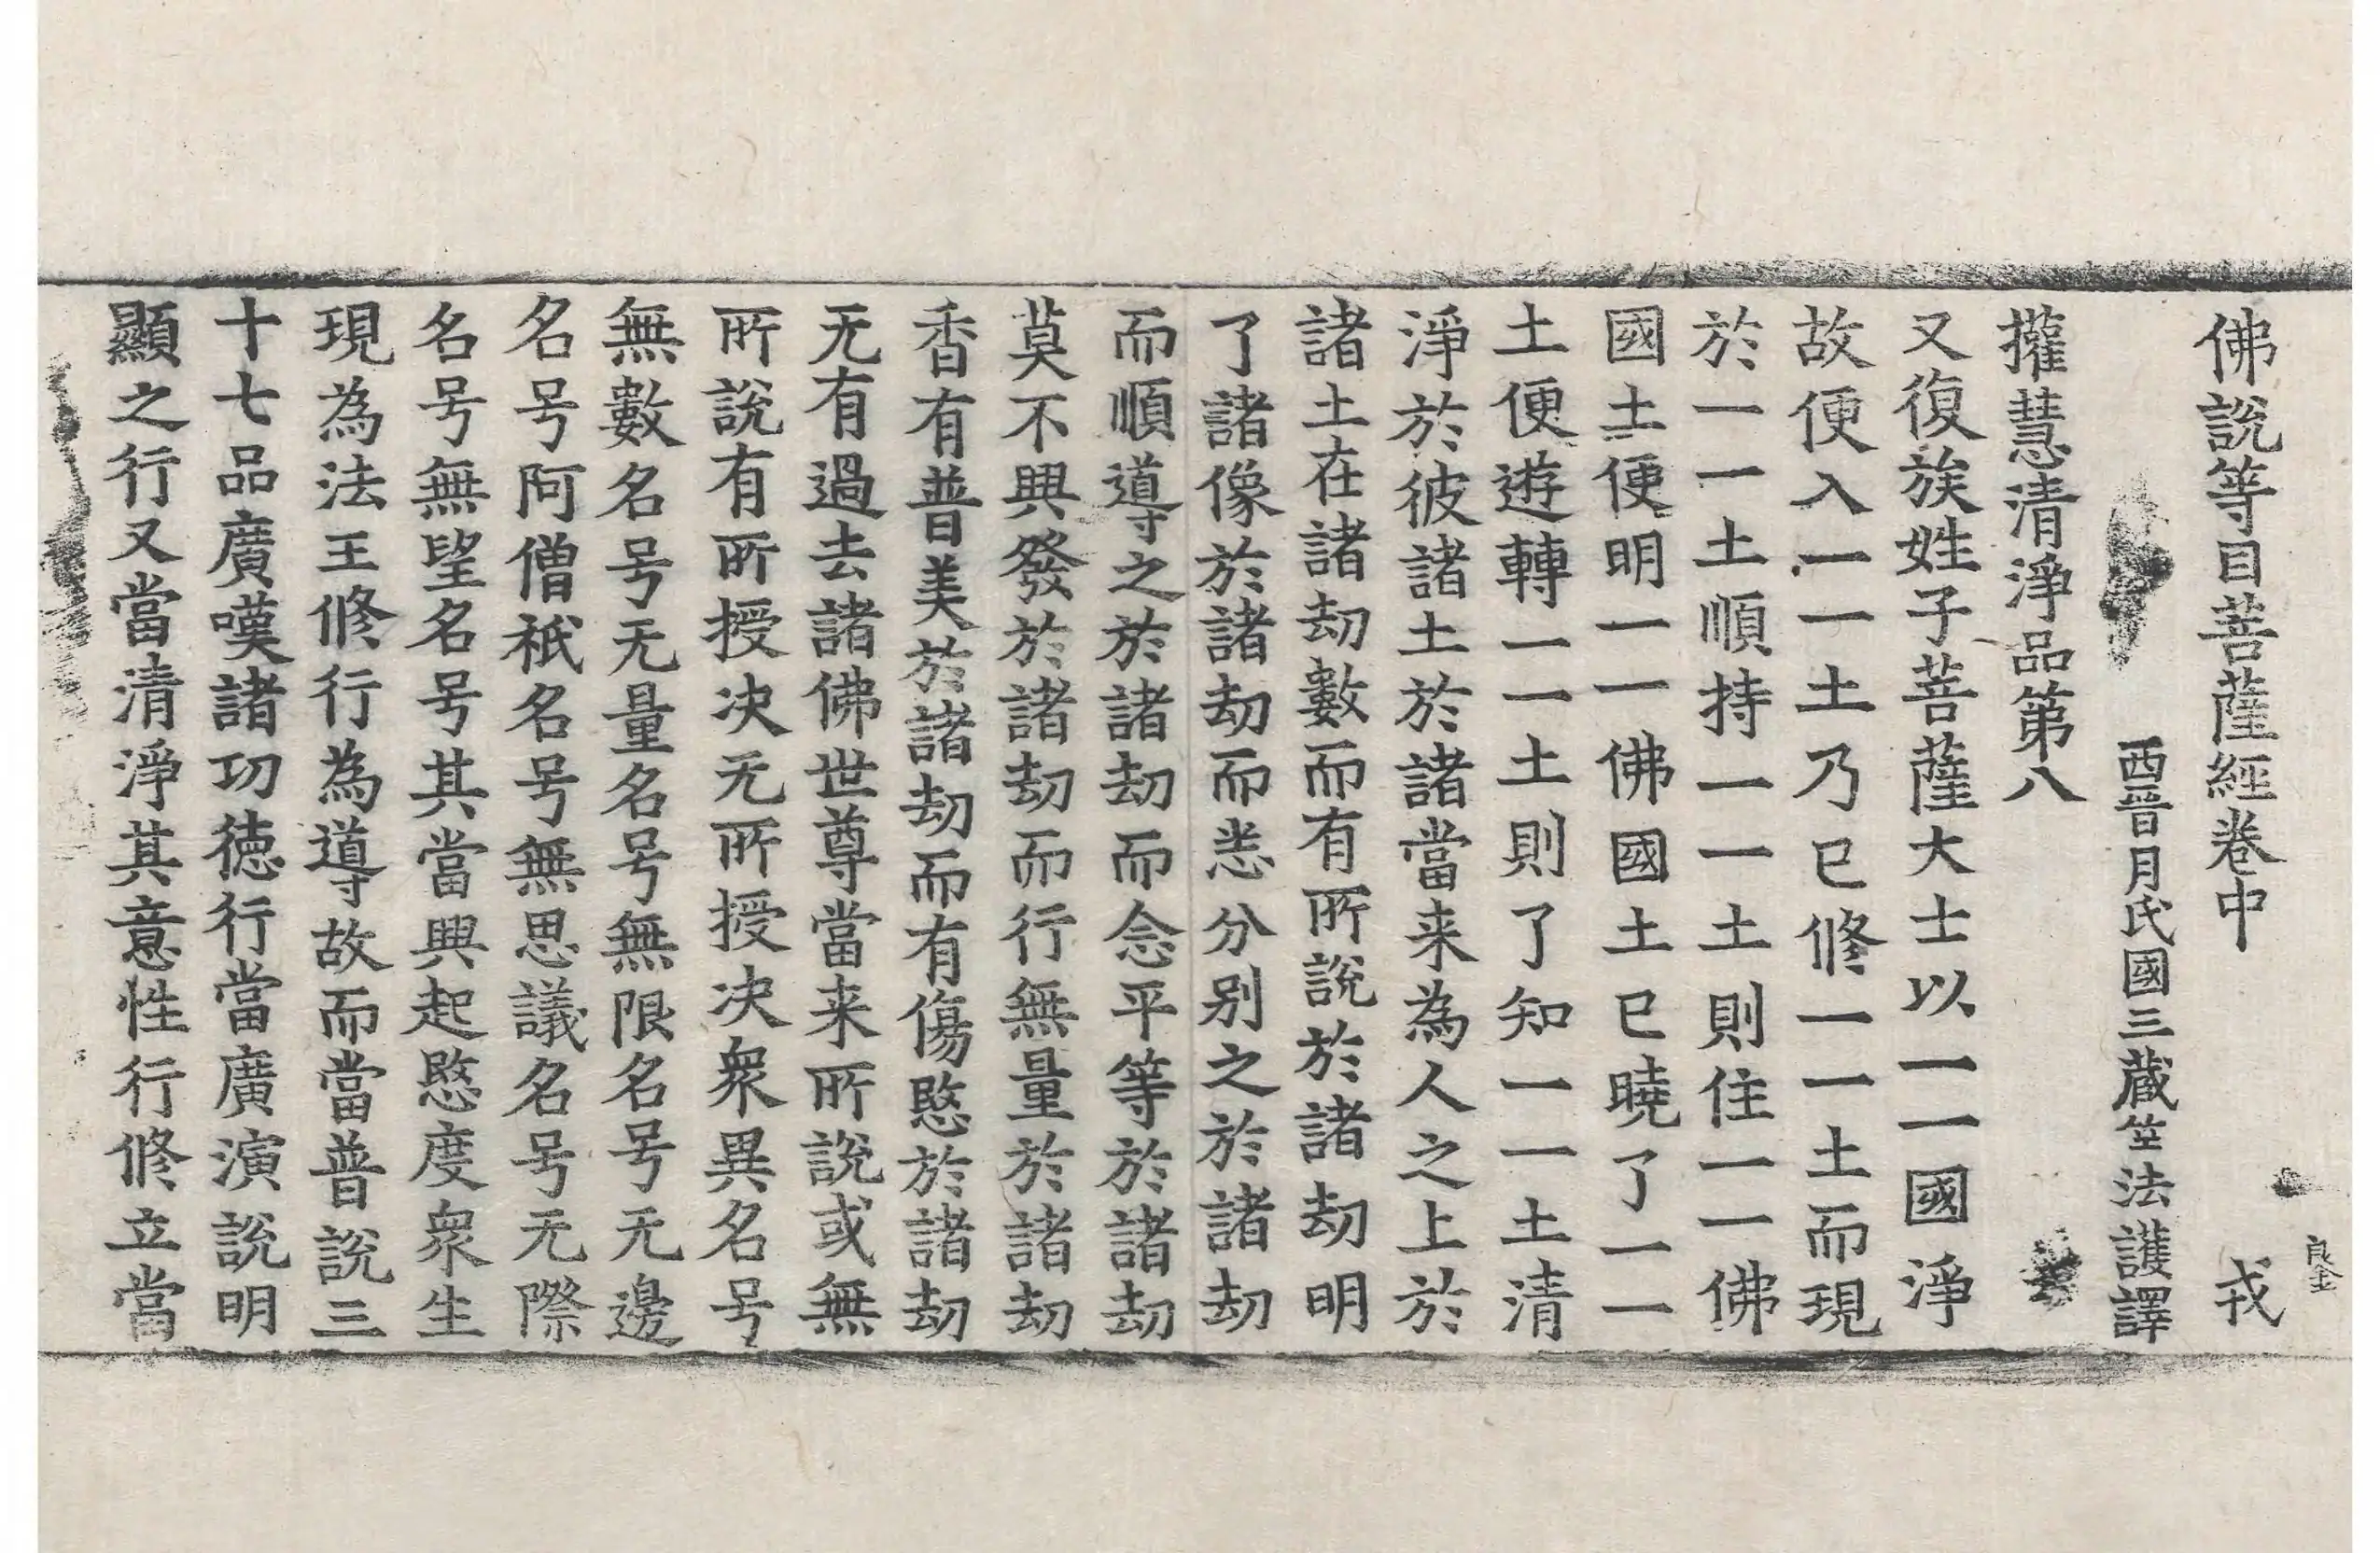 佛說等目菩薩經卷中
戎
西晉月氏國三藏竺法護譯
攉慧清淨品第八
又復族姓子菩薩大士以一一國淨
故便入一一土乃已修一一土而現
於一一土順持一一土則住一一佛
國土便明一一佛國土已曉了一一
土便遊轉一一土則了知一一土清
淨於彼諸土於諸當来為人之上於
諸土在諸劫數而有所說於諸劫明
了諸像於諸劫而悉分别之於諸劫
而順導之於諸劫而念平等於諸劫
莫不興發於諸劫而行無量於諸劫
香有普美於諸劫而有傷愍於諸劫
无有過去諸佛世尊當来所說或無
所說有所授决无所授决衆異名号
無數名号无量名号無限名号无邊
名号阿僧祇名号無思議名号无際
名号無望名号其當興起愍度衆生
現為法王修行為導故而當普說三
十七品廣嘆諸功徳行當廣演說明
顯之行又當清淨其意性行修立當